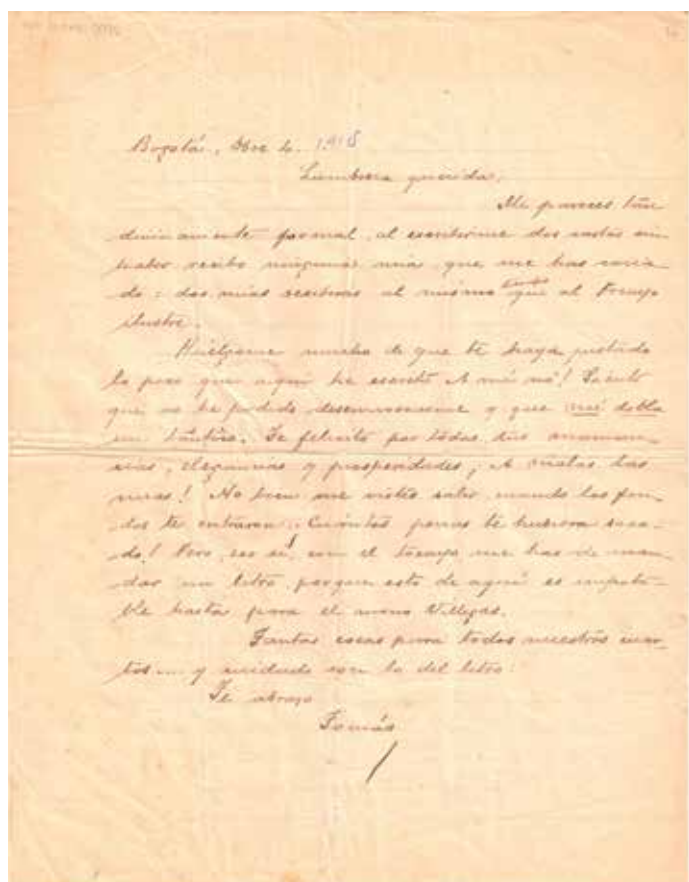 Bogotá, Obre 4. 1915
Lumbrera querida.
Me pareces tan
divinamente formal, al escribirme dos cartas sin
haber recibo ninguna mía, que me has
do: dos mías recibirás al mismo tiempo que al
ilustre.
Huélgome mucho de que te haya gustado
lo poco que aquí he escrito. A mí nó! Siento
que no he podido desenvolverme y que
un tantico. Te felicito por todas tus
cias, elegancias y prosperidades; A
mías! No bien me vistes salir, cuando los fon-
dos te entraron. Cuántas perras te hubiera saca-
do! Pero, eso sí, con el tocayo me has de man-
dar un litro, porque esto de aquí es impota-
ble hasta para el mono Villegas.
Tantas cosas para todos nuestros
tos.... y cuidado con lo del litro.
Te abraza
Tomás